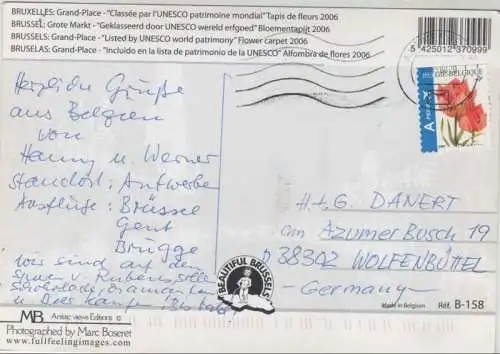 BRUXELLES: Grand-Place - "Classée par l'UNESCO patrimoine mondial" Tapis de fleurs 2006
BRUSSEL: Grote Markt - "Geklasseerd door UNESCO wereld erfgoed" Bloementapijt 2006
BRUSSELS: Grand-Place - "Listed by UNESCO world patrimony" Flower carpet 2006
BRUSELAS: Grand-Place - "Incluido en la lista de patrimonio de la UNESCO" Alfombra de flores 2006
5 425012 370999
BELGIE-BELGIQUE
A PRIOR
Herzliche Grüße
aus Belgien
von
Hanny u. Werner
Standort: Antwerpen
Ausflüge: Brüssel
Gent
Brügge
Wir sind auf den
Spuren v. Rubens,
Schokolade, Diamanten
u.
H+G. DANERT
Am Azumer Busch 19
D 38302 WOLFENBÜTTEL
- Germany -
BEAUTIFUL BRUSSELS
Made in Belgium
Réf. B-158
MB Artistic views Editions ©
Photographed by Marc Boseret
www.fullfeelingimages.com